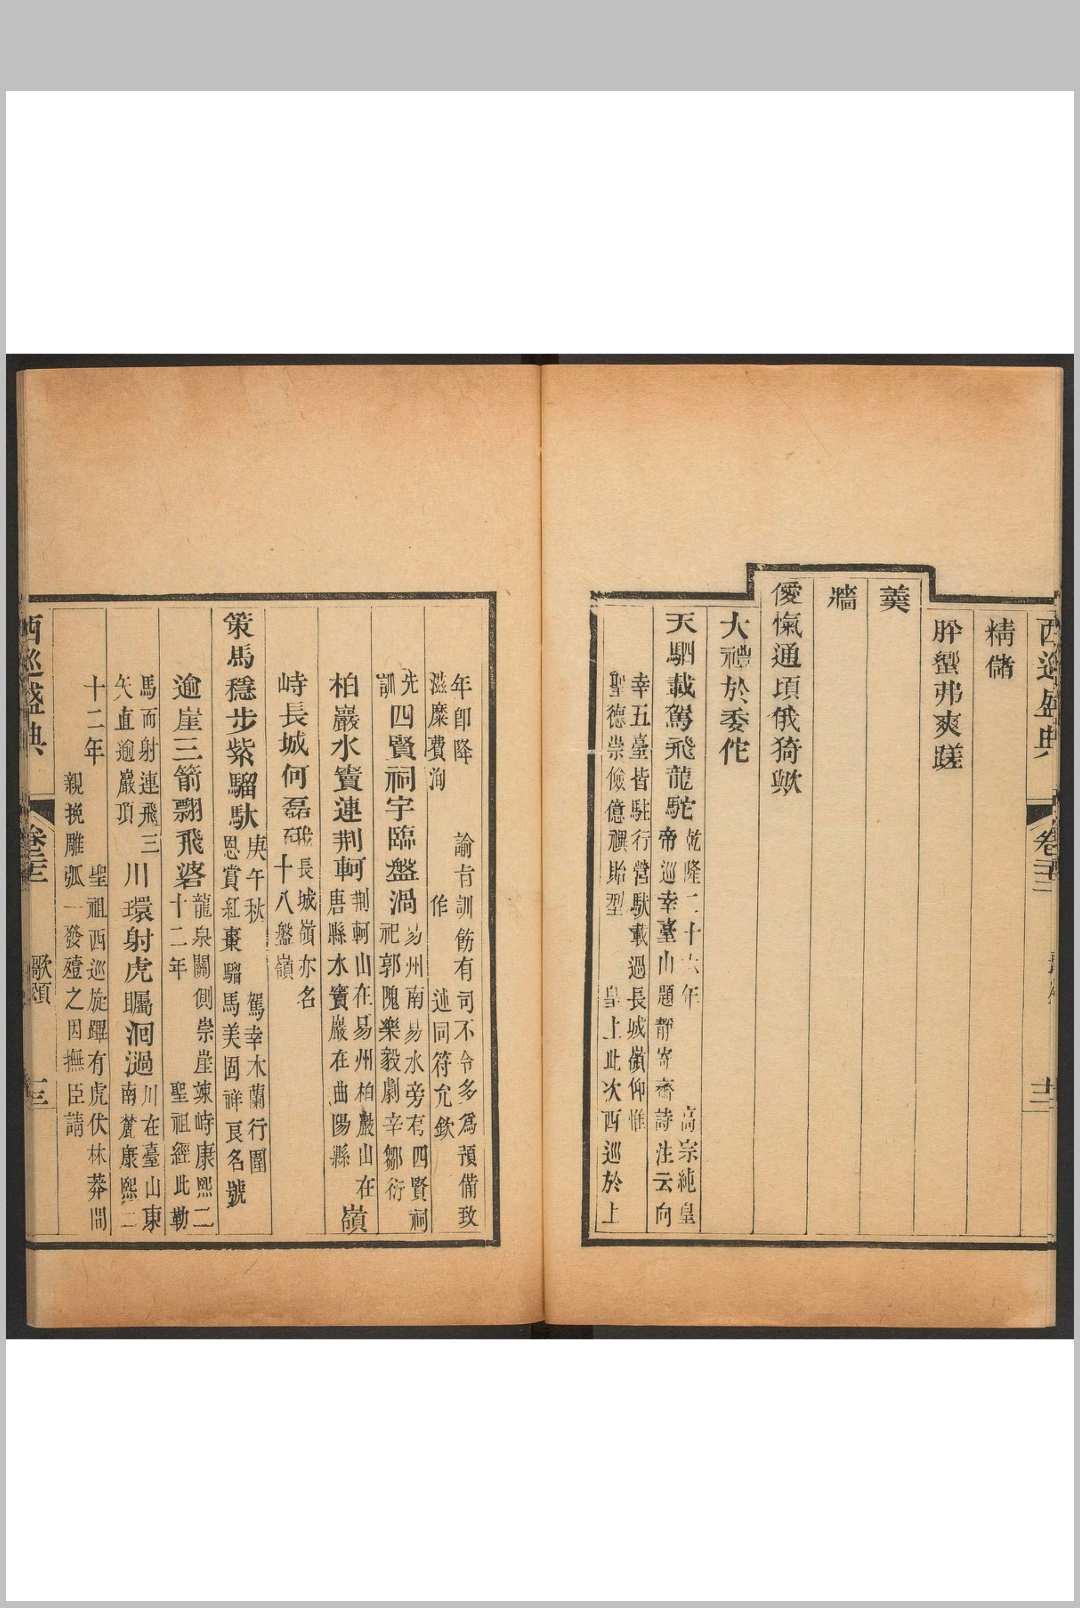 西巡盛典 卷二十三 十二
精儲
肸蠁弗爽蹉
羹
牆
僾愾通頃俄猗歟
大禮於委佗
天駟載駕飛龍駝帝巡幸臺山題靜寄齋詩注云向
乾隆二十六年 高宗純皇
幸五臺皆駐行營馱載過長城嶺仰惟
聖德崇儉億禩貽型 皇上此次西巡於上
年卽降 諭旨訓飭有司不令多為預備致
滋糜費洵 作 述同符允欽
先四賢祠宇臨盤渦易州南易水旁有四賢祠
訓 祀郭隗樂毅劇辛鄒衍
柏巖水竇連荆軻荆軻山在易州柏巖山在 嶺
唐縣水竇巖在曲陽縣
峙長城何磊硪長城嶺亦名
十八盤嶺
策馬穩步紫騮馱庚午秋 駕幸木蘭行圍
恩賞紅棗騮馬美固祥良名號
逾崖三箭飄飛硰龍泉關側崇崖竦峙康熙二
十二年 聖祖經此勒
馬而射連飛三 川環射虎矚洄濄川在臺山東
矢直逾巖頂 南麓康熙二
十二年 聖祖西巡旋蹕有虎伏林莽間
親挽雕弧一發殪之因撫臣請
西巡盛典 卷二十三 歌頌 十三